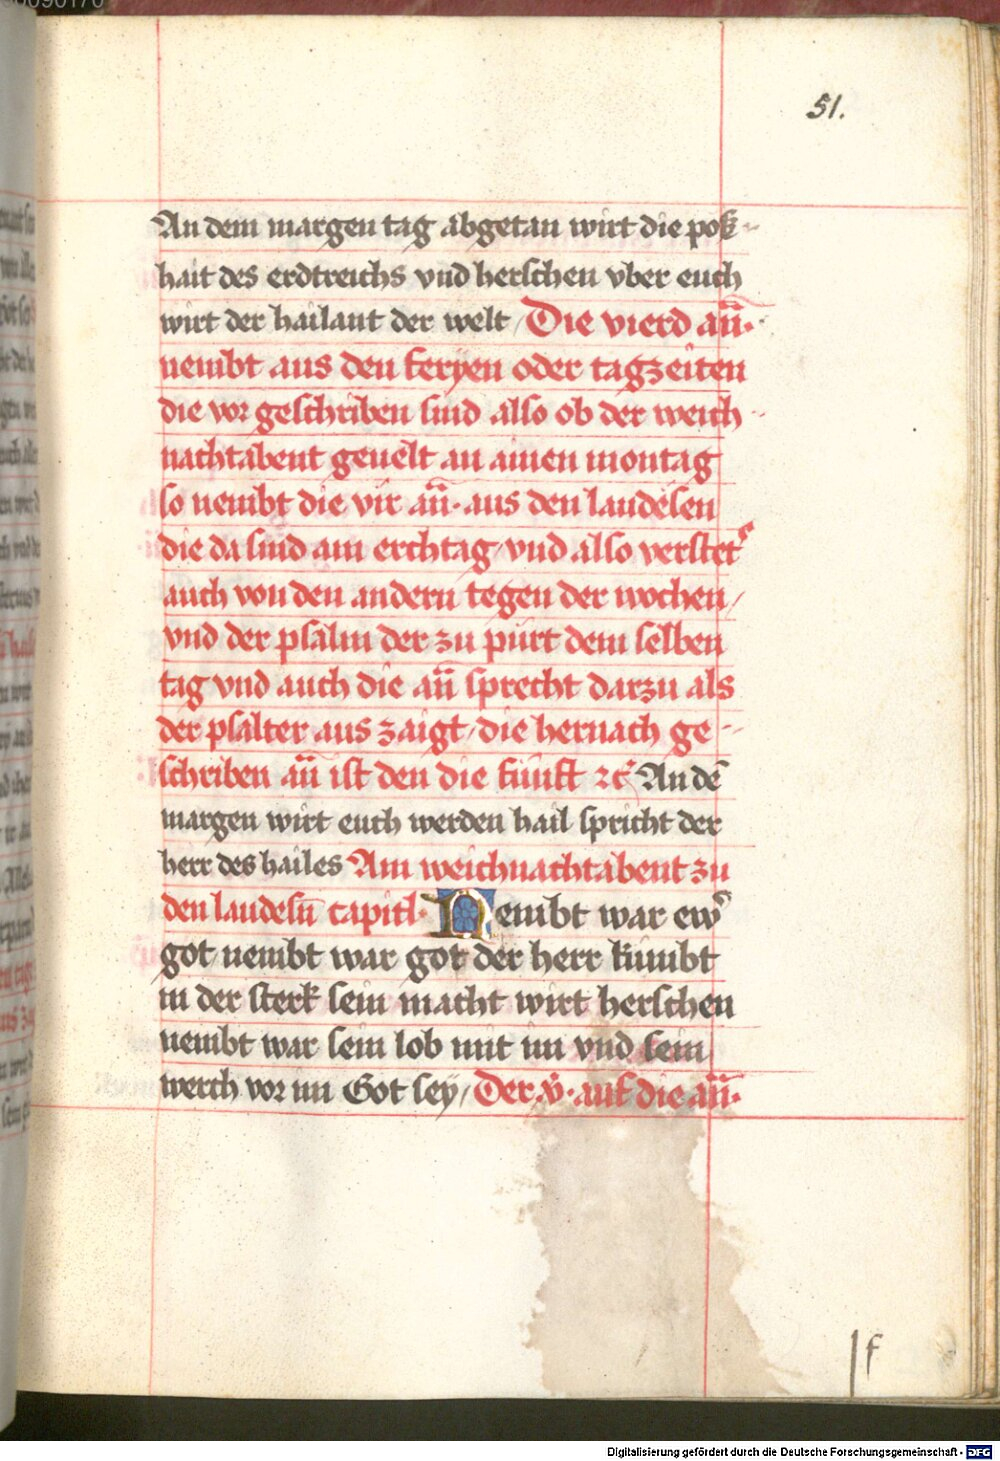 51.
An dem margen tag abgetan wirt die pok-
hait des erdtreichs vnd herschen vber euch
wirt der hailant der welt / Die vierd an̄·
nembt aus den feryen oder tagzeiten
die vor geschriben sind also ob der weich-
nachtabent geuelt an ainen montag
so nembt die vir an̄· aus den laudesen
die da sind am erchtag / vnd also verstet
auch von den andern tegen der wochen /
vnd der psalm der zu pürt dem selben
tag vnd auch die an̄ sprecht darzu als
der psalter aus zaigt / die hernach ge-
schriben an̄ ist den die fünft ⁊c̄ An dē
margen wirt euch werden hail spricht der
herr des hailes Am weichnachtabent zu
den laudesn̄ capitl· Nembt war ew̄
got / nembt war got der herr kümbt
in der sterk sein macht wirt herschen
nembt war sein lob mit im vnd sein
werch vor im Got sey / Der v̄· auf die an̄·
f
Digitalisierung gefördert durch die Deutsche Forschungsgemeinschaft - DFG